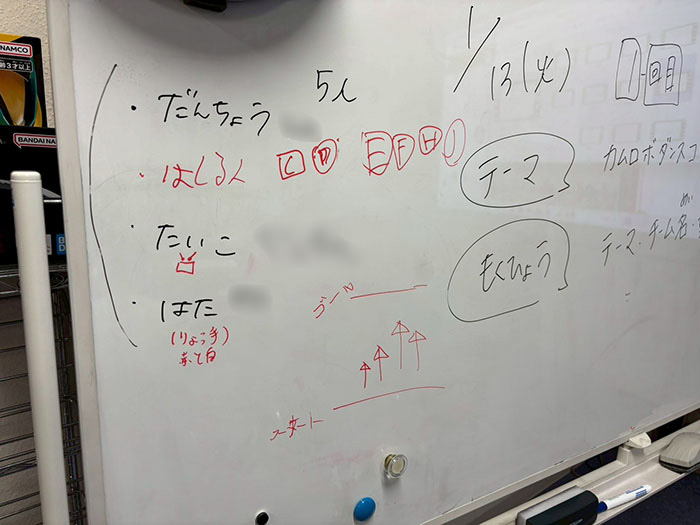 NAMCO
BANDAI
BANDAI NA
1/13(火)
1回目
5人
・だんちょう
・はしる人 C D E F H J
・たいこ
・はた
(りょう手)
赤と白
テーマ
カムロボダンスコ
もくひょう
テーマ・チーム名・
ゴール
スタート